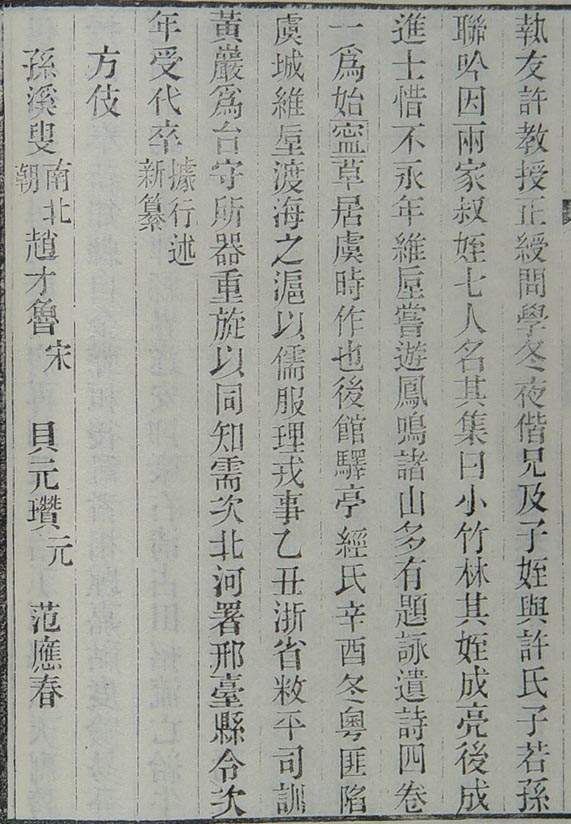 執友許教授正綬問學冬夜偕兄及子姪與許氏子若孫
聯吟因兩家叔姪七人名其集曰小竹林其姪成亮後成
進士惜不永年維垕嘗遊鳳鳴諸山多有題詠遺詩四卷
一爲始寍草居虞時作也後館驛亭經氏辛酉冬粵匪陷
虞城維垕渡海之滬以儒服理戎事乙丑浙省敉平司訓
黃巖爲台守所器重旋以同知需次北河署邢臺縣令次
年受代卒據行述新纂
方伎
孫溪叟南北朝 趙才魯宋 貝元瓚元 范應春